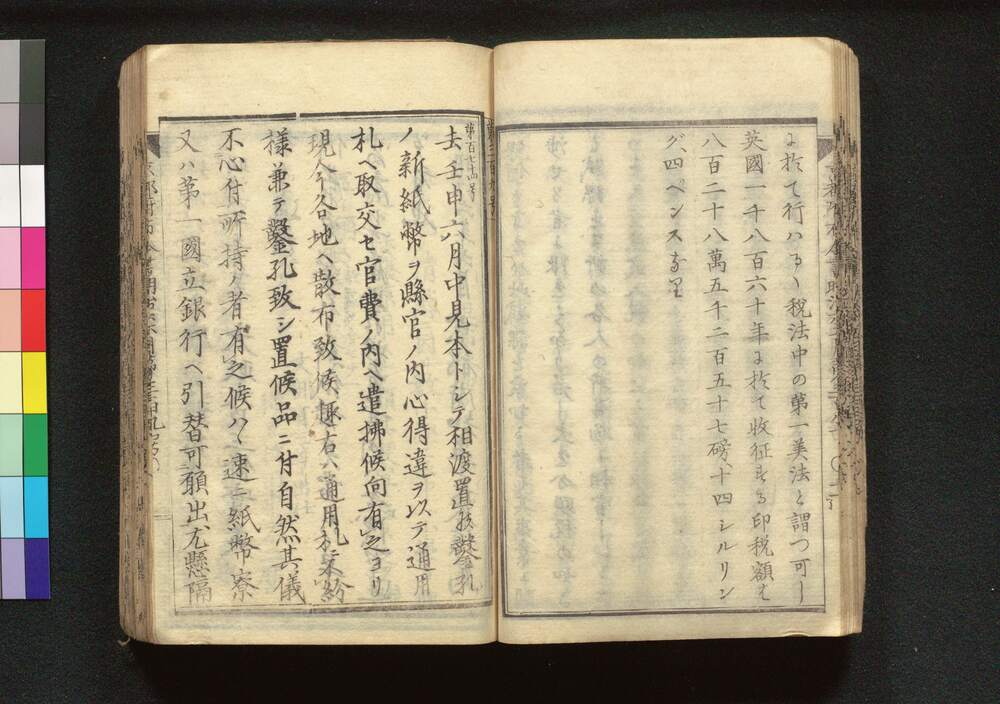 に於て行ハるゝ税法中の第一美法と謂つ可し
英國一千八百六十年に於て收征する印税額は
八百二十八萬五千二百五十七磅十四シルリン
グ四ペンスなり
第百七十四号
去壬申六月中見本トシテ相渡置候鑿孔
ノ新紙幣ヲ縣官ノ内心得違ヲ以テ通用
札ヘ取交セ官費ノ内ヘ遣拂候向有之ヨリ
現今各地ヘ散布致候趣右ハ通用札ニ不紛
様兼テ鑿孔致シ置候品ニ付自然其儀
不心付所持ノ者有之候ハヽ速ニ紙幣寮
又ハ第一國立銀行ヘ引替可願出尤懸隔